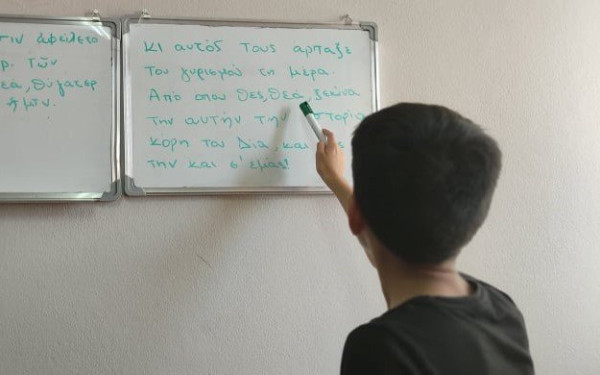 τιν ἀφείλετο
ρ. τῶν
εά, θύγατερ
ἡμῖν.
κι αυτὸς τους αρπαξε
του γυρισμού τη μέρα.
Από οπου θες, θεά, ξεκινα
την αυτήν την στορία
κόρη του Δια, και ς
την και σ' εμάς!